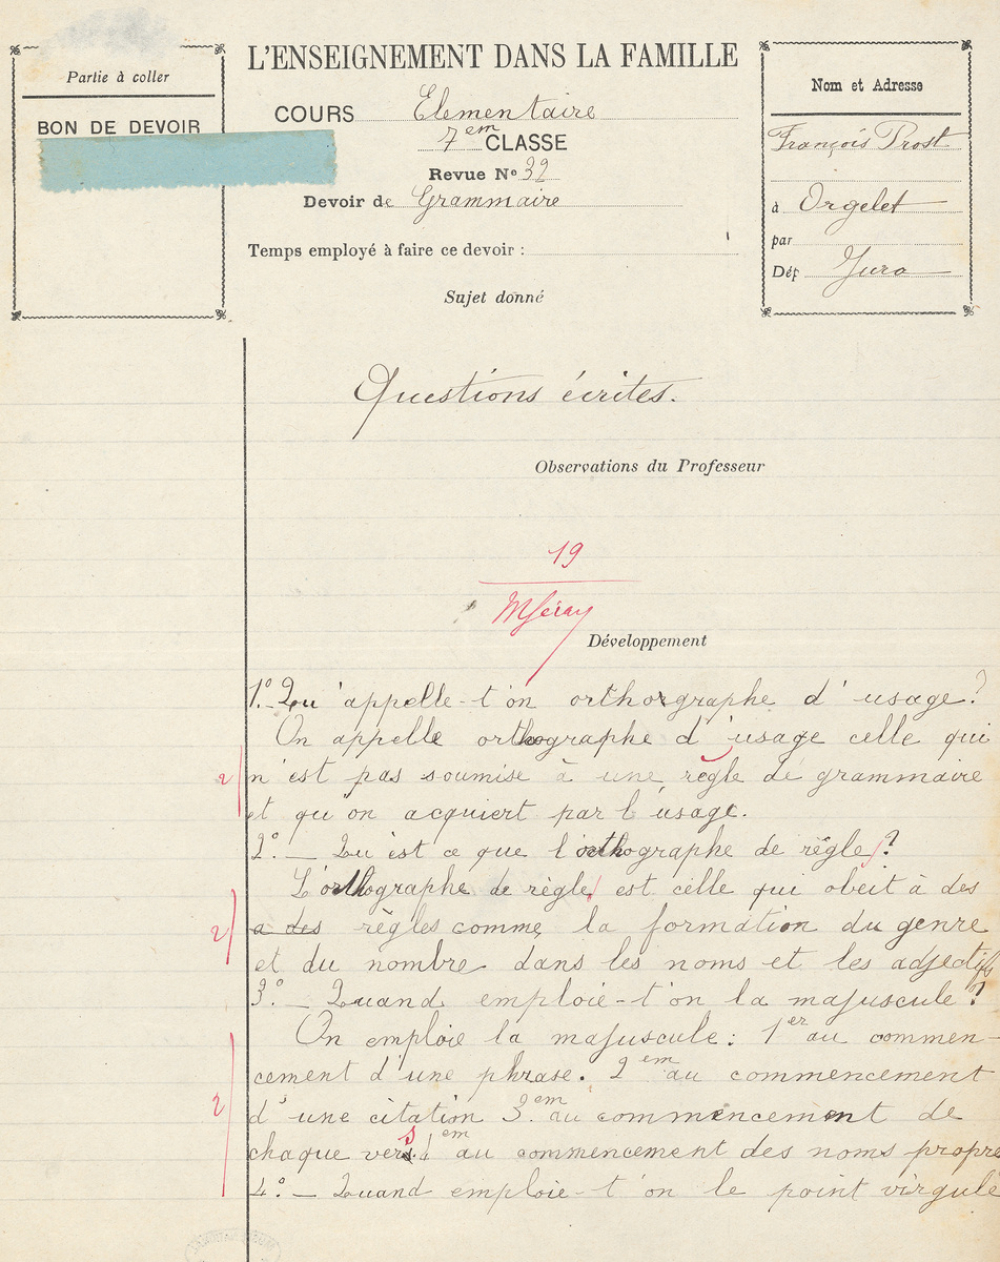 Partie à coller
BON DE DEVOIR
L'ENSEIGNEMENT DANS LA FAMILLE
COURS Élémentaire
7em CLASSE
Revue No 32
Devoir de Grammaire
Temps employé à faire ce devoir :
Sujet donné
Nom et Adresse
François Prost
à Orgelet
par
Dép Jura
Questions écrites.
Observations du Professeur
19
Développement
1.° - Qu'appelle-t'on orthorgraphe d'usage?
On appelle orthographe d'usage celle qui
2 n'est pas soumise à une règle de grammaire
et qu'on acquiert par l'usage.
2.° - Qu'est ce que l'orthographe de règle ?
L'orthographe de règle est celle qui obeit à des
2 a des règles comme la formation du genre
et du nombre dans les noms et les adjectifs
3.° - Quand emploie-t'on la majuscule ?
On emploie la majuscule : 1er au commen-
cement d'une phrase. 2em au commencement
2 d'une citation 3.em au commencement de
chaque vers 4em au commencement des noms propre
4.° - Quand emploie-t'on le point virgule